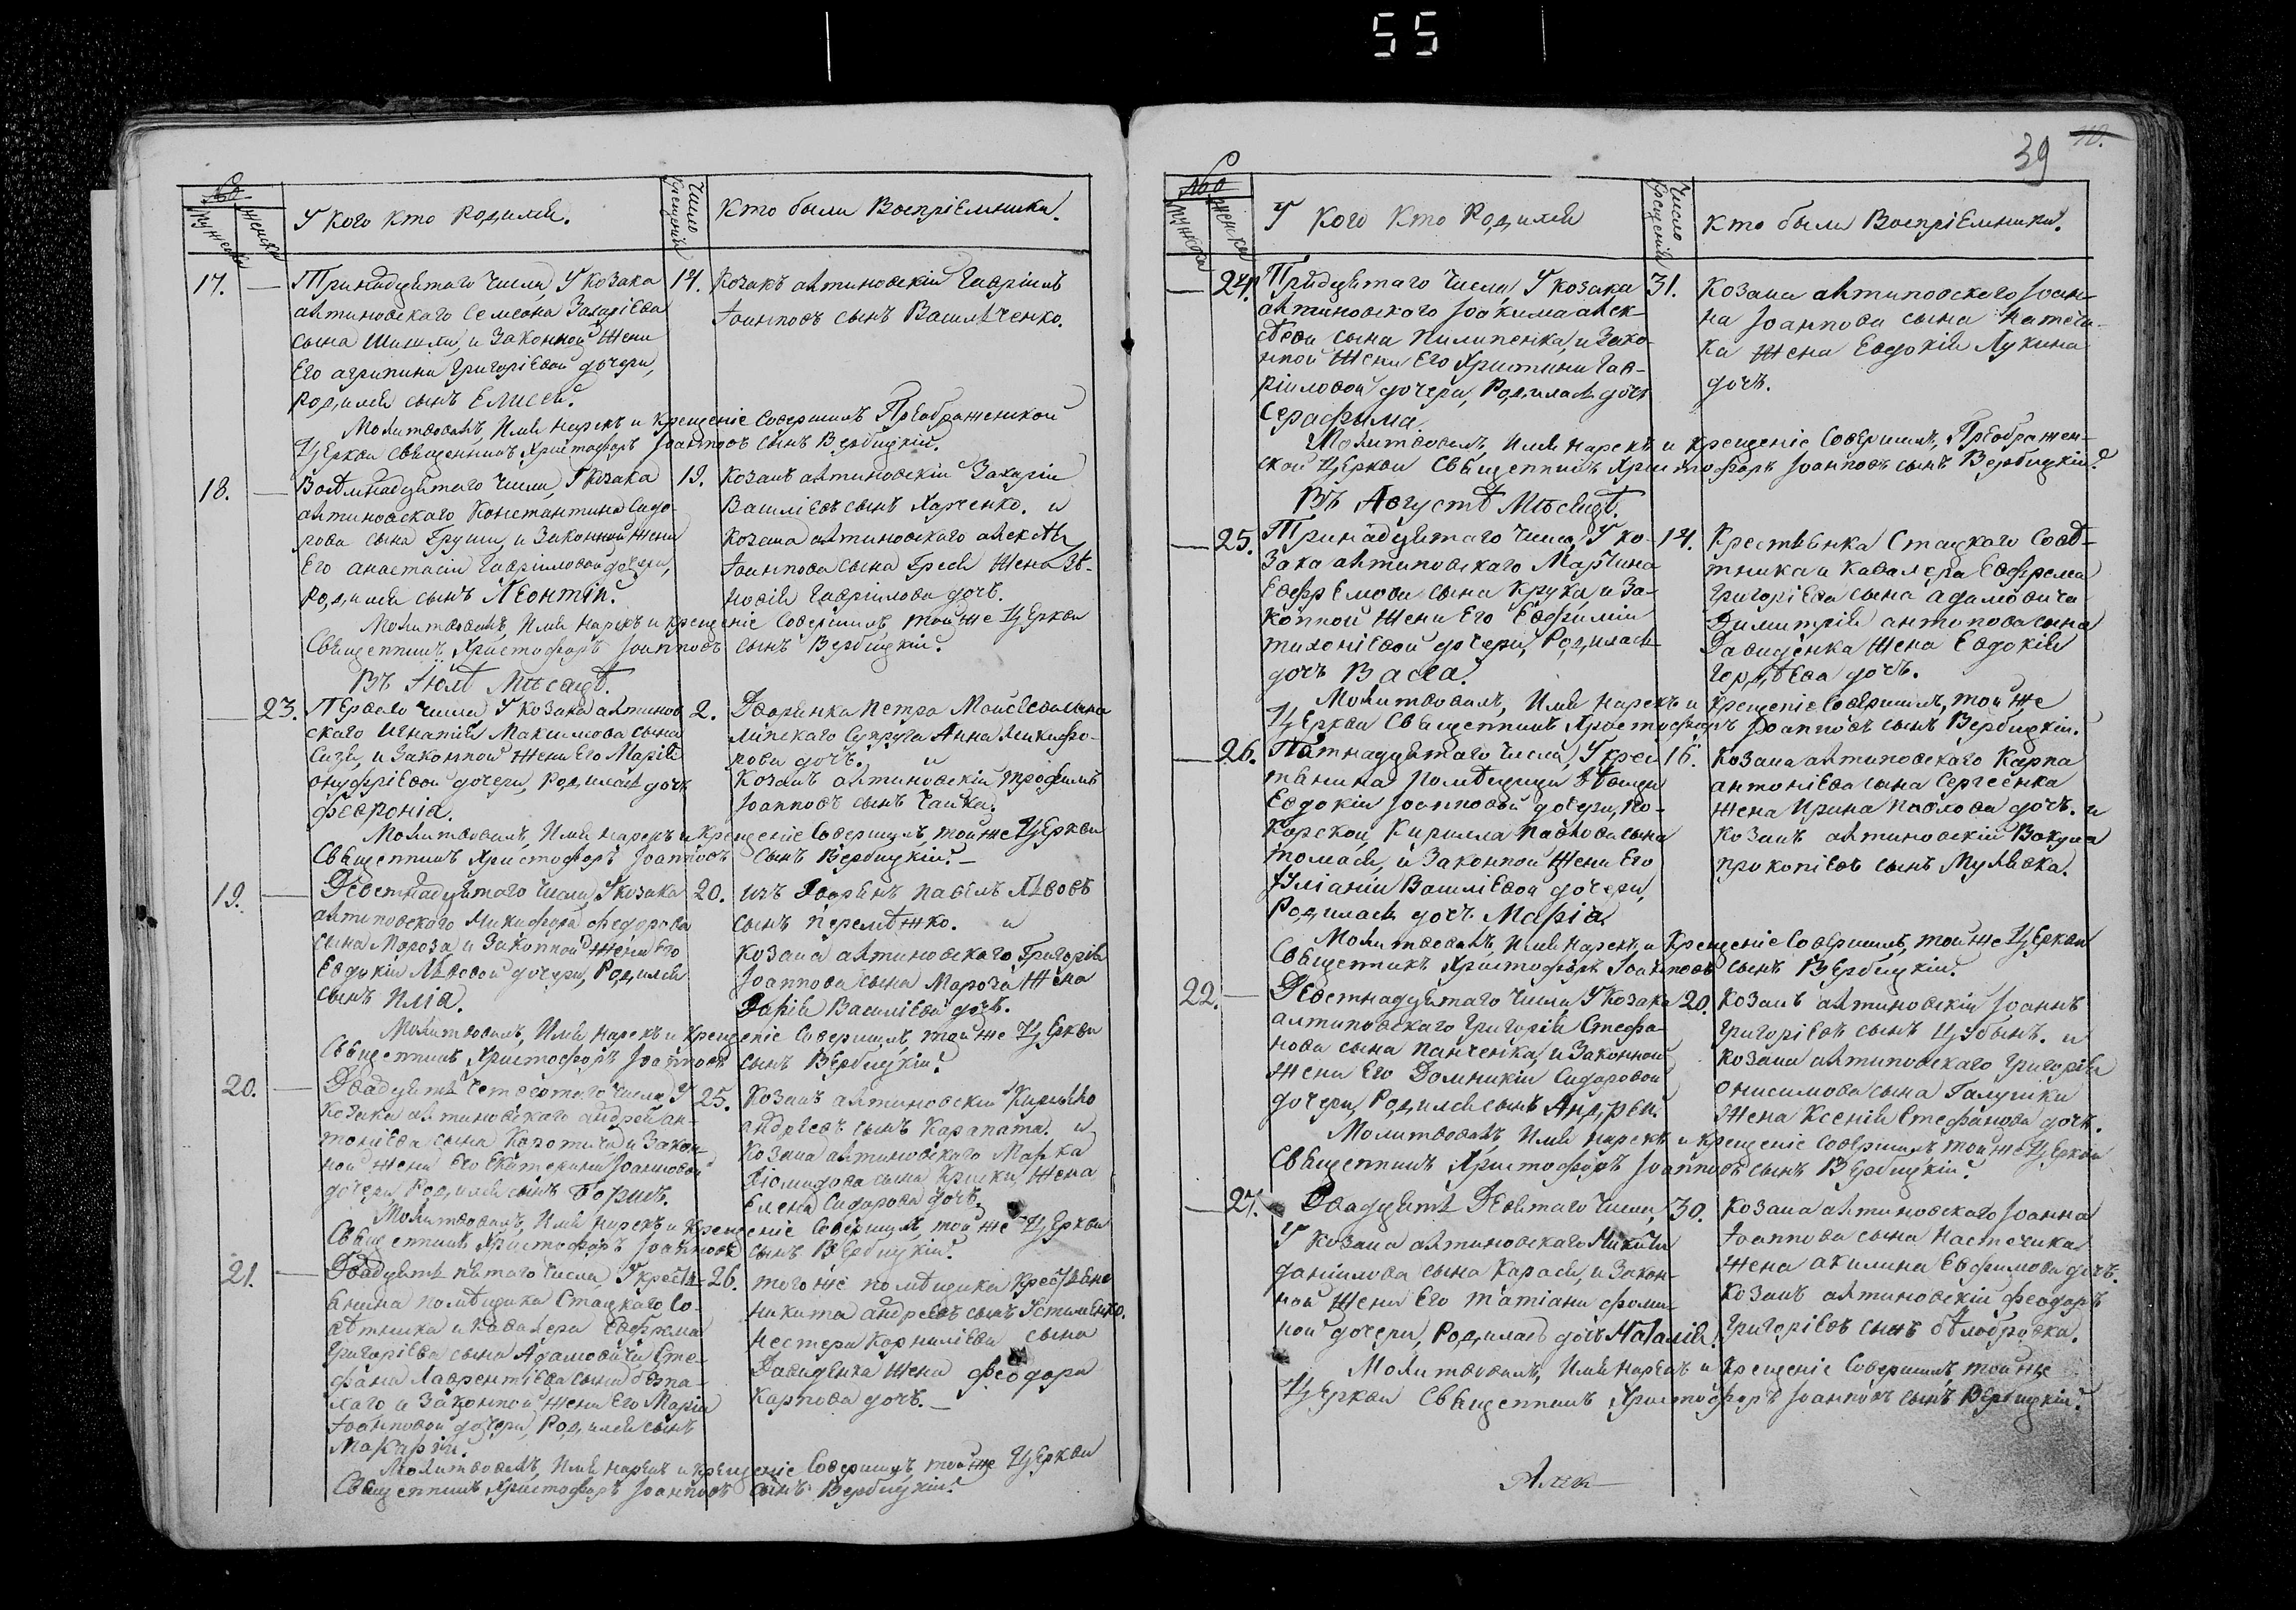 55
№
Мужеска
Женска
У кого кто Родился.
Число Крещенія
Кто были Воспріемники.
17.
Тринадцятаго Числа, У козака
алтиновского Семеона Захаріева
сына Шишли, и Законной Жены
Его агрипины Григоріевой дочери,
Родился сынъ Елисей.
14.
Козакъ алтиновскій Гавріилъ
Іоанновъ сынъ Василѣченко.
Молитвовалъ, Имя нарекъ и Крещеніе Совершилъ Преображенской
Церкви Священникъ Христофоръ Іоанновъ сынъ Вербицкій.
18.
Восѣмнадцятаго Числа, У Козака
алтиновского Константина Сидо-
рова сына Груши, и Законной Жены
Его анастасіи Гавріиловой дочери,
Родился сынъ Леонтій.
19.
Козакъ алтиновскій Захарій
Василіевъ сынъ Харченко. и
Козака алтиновского алексѣя
Іоаннова сына Жена Зѣ-
новія Гавріилова дочъ.
Молитвовалъ, Имя нарекъ и крещеніе Совершилъ, той же Церкви
Священникъ Христофоръ Іоанновъ сынъ Вербицкій.
Въ Іюлѣ Мѣсяцѣ.
23.
Перваго Числа У Козака алтинов
ского Игнатія Максимова сына
и Законной Жены Его Маріи
онуфріевой дочери, Родилась дочъ
Февронія.
2.
Дворянка Петра Моисѣева сына
Липского Супруга Анна Никифо-
рова дочъ. и
Козакъ алтиновскій трофимъ
Іоанновъ сынъ Чайка.
Молитвовалъ, Имя нарекъ и Крещеніе Совершилъ, той же Церкви
Священникъ Христофоръ Іоанновъ сынъ Вербицкій.
19.
Деветнадцятаго Числа, У козака
алтиновского Никифора Федорова
сына Мороза, и Законной Жены Его
Евдокіи Лѣвовой дочери, Родился
сынъ Илія.
20.
изъ Дворянъ Павелъ Лѣвовъ
сынъ Перемѣжко. и
Козака алтиновского Григорія
Іоаннова сына Мороза Жена
Дарія Василіева дочъ.
Молитвовалъ, Имя нарекъ и Крещеніе Совершилъ, той же Церкви
Священникъ Христофоръ Іоанновъ сынъ Вербицкій.
20.
Двадцять Четвертаго Числа, У
Козака алтиновского андрея ан-
тоніева сына и Закон-
ной Жены Его Екатерины Іоанновой
дочери, Родился сынъ Борисъ.
25.
Козакъ алтиновскій Кирилло
андреевъ сынъ Карапата. и
Козака алтиновского Марка
Діомидова сына Жена
Елена Сидорова дочъ.
Молитвовалъ, Имя нарекъ и Крещеніе Совершилъ, той же Церкви
Священникъ Христофоръ Іоанновъ сынъ Вербицкій.
21.
Двадцять пятаго Числа, У крестъ-
янина помѣщика Стацкаго Со-
вѣтника и Кавалера Евфрема
Григоріева сына Адамовича Сте-
фана Лаврентіева сына
и Законной Жены Его Маріи
Іоанновой дочери, Родился сынъ
Макарій.
26.
того же помѣщика Крестъяне
никита андреевъ сынъ Устименко.
нестера Карниліева сына
Давиденка Жена Феодора
Карпова дочъ.
Молитвовалъ, Имя нарекъ и Крещеніе Совершилъ, той же Церкви
Священникъ Христофоръ Іоанновъ сынъ Вербицкій.
39
40.
№
Мужеска
Женска
У кого кто Родился
Число Крещенія
Кто были Воспріемники.
24.
Тридцятаго Числа, У козака
алтиновского Іоакима алек-
сѣева сына Пилипенка, и Зако-
нной Жены Его Христины Гав-
ріиловой дочери, Родилась дочъ
Серафима.
31.
Козака алтиновского Іоан-
на Іоаннова сына
Жена Евдокія Лукина
дочъ.
Молитвовалъ, Имя нарекъ и крещеніе Совершилъ, Преображен-
ской Церкви Священникъ Христофоръ Іоанновъ сынъ Вербицкій.
Въ Августѣ Мѣсяцѣ.
25.
Тринадцятаго Числа, У ко-
зака алтиновского Мартина
Евфремова сына Крука, и За-
конной Жены Его Евфиміи
тихоніевой дочери, Родилась
дочъ Васса.
14.
Крестьянка Стацкаго Совѣ-
тника и Кавалера Евфрема
Григоріева сына Адамовича
Димитрія антонова сына
Давиденка Жена Евдокія
Гордѣева дочъ.
Молитвовалъ, Имя нарекъ и Крещеніе Совершилъ, той же
Церкви Священникъ Христофоръ Іоанновъ сынъ Вербицкій.
26.
Пятнадцятаго Числа, У крес
тянина Помѣщици
Евдокіи Іоанновой дочери, По-
корской, Кирилла Павлова сына
томася, и Законной Жены Его
Уліаніи Василіевой дочери,
Родилась дочъ Марія.
16.
Козака алтиновского Карпа
антоніева сына Сергеенка
Жена Ирина Павлова дочъ. и
Козакъ алтиновскій Вакула
прокопіевъ сынъ Мулявка.
Молитвовалъ, Имя нарекъ, и Крещеніе Совершилъ, той же Церкви
Священникъ Христофоръ Іоанновъ сынъ Вербицкій.
22.
Деветнадцятаго Числа У Козака
алтиновского Григорія Стефа-
нова сына Панченка, и Законной
Жены Его Домникіи Сидоровой
дочери, Родился сынъ Андрей.
20.
Козакъ алтиновскій Іоаннъ
Григоріевъ сынъ Цубынъ. и
Козака алтиновского Григорія
онисимова сына Галушки
Жена Ксенія Стефанова дочъ.
Молитвовалъ, Имя нарекъ и крещеніе Совершилъ, той же Церкви
Священникъ Христофоръ Іоанновъ сынъ Вербицкій.
27.
Двадцять Девятаго Числа,
У Козака алтиновского Никиты
Даніилова сына Карася, и Закон-
ной Жены Его татіаны фоми-
ной дочери, Родилась дочъ Наталія.
30.
Козака алтиновского Іоанна
Іоаннова сына
Жена акилина Евфимова дочъ.
Козакъ алтиновскій Феодоръ
Григоріевъ сынъ бѣлобровка.
Молитвовалъ, Имя Нарекъ и Крещеніе Совершилъ, той же
Церкви Священникъ Христофоръ Іоанновъ сынъ Вербицкій.